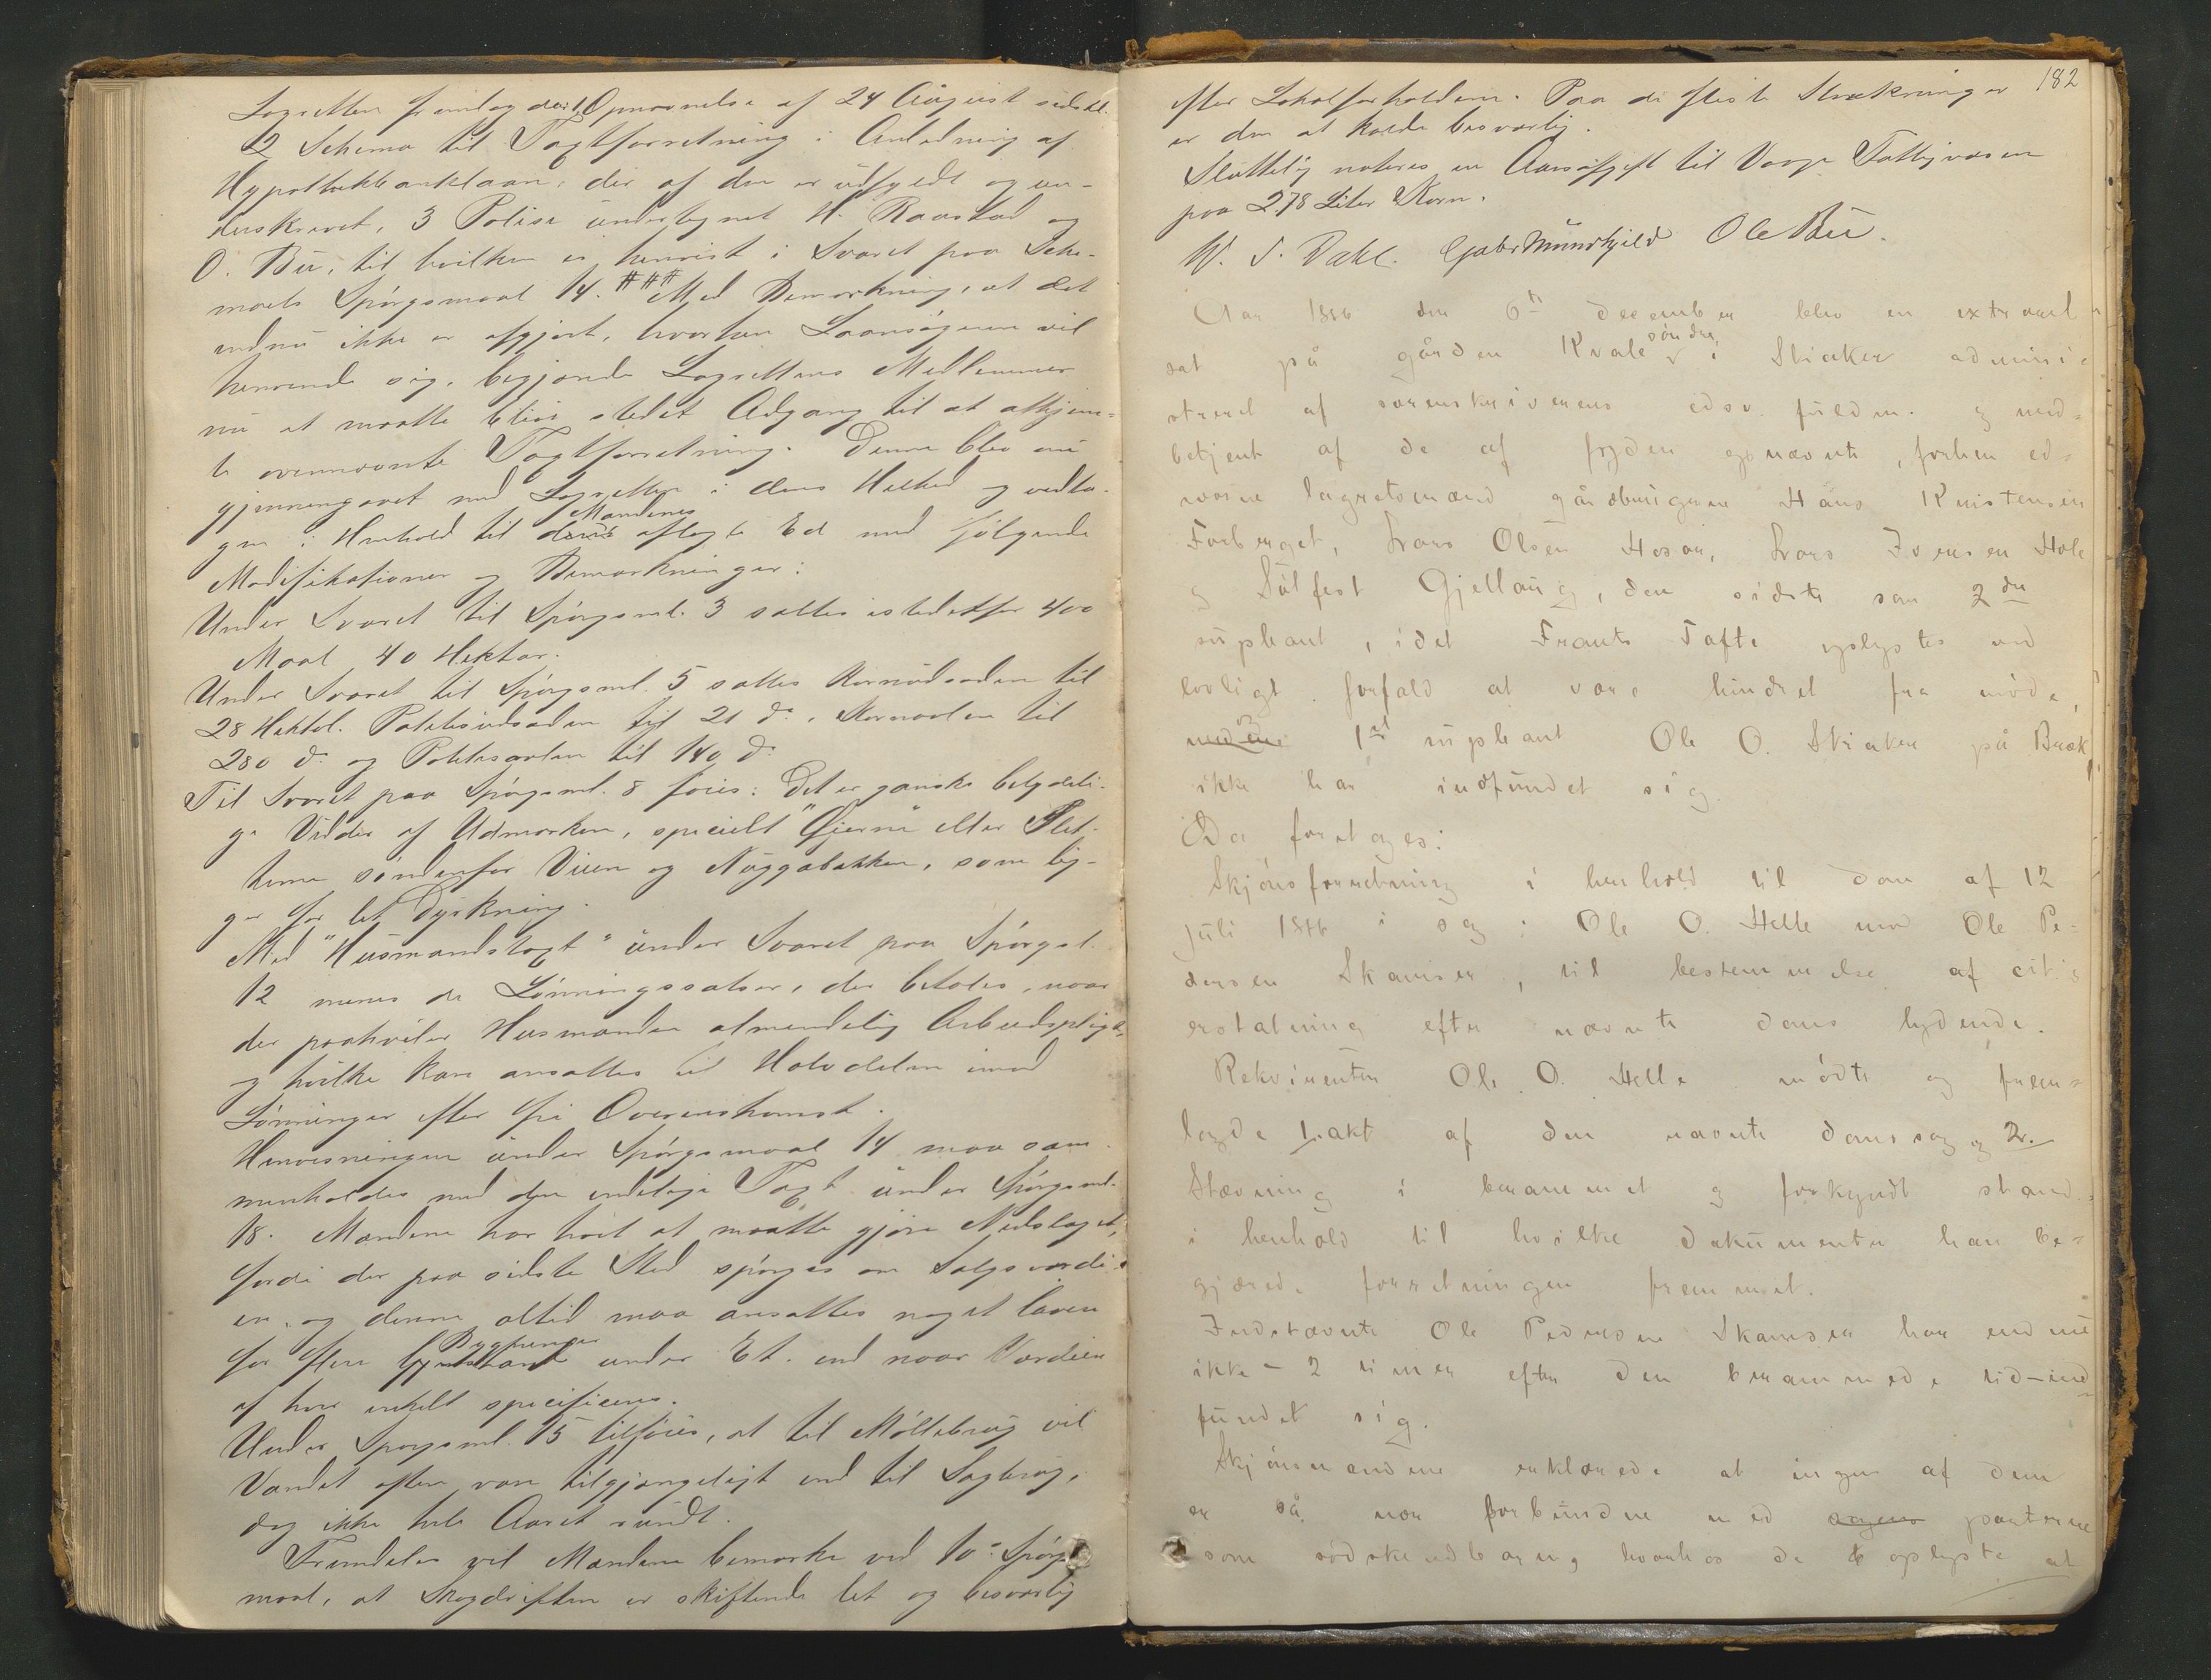 Lagretten fremlagdes: 1 Opnævnelse af 24 August sidstl.
2 Schema til Taxtforretning i Anledning af
Hypothekbanklaan, der af den er udfyldt og un-
derskrevet, 3 Police undertegnet H. Raastad og
O. Bü, til hvilken er henvist i Svaret paa Sche-
maets Spörgsmaal 14. Med Bemærkning, at det
endnu ikke er afgjort, hvorhen Laansögeren vil
henvende sig, begjærede Lagrettens Medlemmer
nu at maatte blive stedet Adgang til at afhjem-
le ovennævnte Taxtforretning. Denne blev nu
gjennemgaaet med Lagretten i dens Helhed og vedta-
gen i Henhold til Mændenes aflagte Ed med fölgende
Modifikationer og Bemærkninger:
Under Svaret til Spörgsml. 3 sættes istedetfor 400
Maal 40 Hektar.
Under Svaret til Spörgsml. 5 sættes Kornudsæden til
28 Hektol. Potetesudsæden til 21 do, Kornavlen til
280 do og Potetesavlen til 140 do
Til Svaret paa Spörgsml. 8 föies: Det er ganske betydeli-
ge Vidder af Udmarken, specielt "Gjerne" eller Slet-
terne söndenfor Veien og Nöggabakken, som lig-
ger for let Dyrkning.
Med "Husmandstaxt" under Svaret paa Spörgsl.
12 menes de Lönningssatser, der betales, naar
der paahviler Husmanden almindelig Arbeidspligt,
og hvilke kan ansættes til Halvdelen imod
Lönninger efter fri Overenskomst.
Henvisningen under Spörgsmaal 14 maa sam-
menholdes med den endelige Taxt under Spörgsml.
18. Mændene har troet at maatte gjöre Nedslaget,
fordi der paa sidste Sted spörges om Salgsværdi-
en, og denne altid maa ansættes noget lavere
for flere Bygninger under Et. end naar Værdien
af hver enkelt specificeres.
Under Spörgsml. 15 tilföies, at til Möllebrug vil
Vandet oftere være tilgjængeligt end til Sagbrug,
dog ikke hele Aaret rundt.
Fremdeles vil Mændene bemærke ved 10de Spörgs
maal, at Skogdriften er skiftende let og besværlig
182
efter Lokalforholdene. Paa de fleste Strækninger
er den at kalde besværlig.
Sluttelig noteres en Aarsafgift til Vaage Fattigvæsen
paa 278 Liter Korn.
W. S. Dahl. Ole Bü.
Aar 1886 den 6te december blev en extraret
sat på gården Kvale söndre i Skiaker admini-
streret af sorenskriverens edsv. fuldm. og med-
betjent af de af fogden opnævnte, forhen ed-
svorne lagretsmænd gårdbrugerne Hans Kristensen
Forberget, Lars Olsen Hesør, Lars Iversen Hole
og Sölfest Gjellaug, den sidste som 2den
supleant, idet Frants Tafte oplystes ved
lovligt forfald at være hindret fra möde,
og 1ste supleant Ole O. Skiaker på Bræk
ikke har indfundet sig.
Da foretoges:
Skjönsforretning i henhold til dom af 12
juli 1886 i sag: Ole O. Helle mod Ole Pe-
dersen Skamsar, til bestemmelse af
erstatning efter nævnte doms lydende.
Rekvirenten Ole O. Helle mödte og frem-
lagde 1. akt af den nævnte domssag og 2.
Stævning i berammet og forkyndt stand
i henhold til hvilke dokumenter han be-
gjærede forretningen fremmet.
Indstævnte Ole Pedersen Skamsar har endnu
ikke - 2 timer efter den berammede tid - ind-
fundet sig.
Skjönsmændene erklærede at ingen af dem
er så nær forbundne med parterne
som södskendebarn, hvorhos de oplyste at